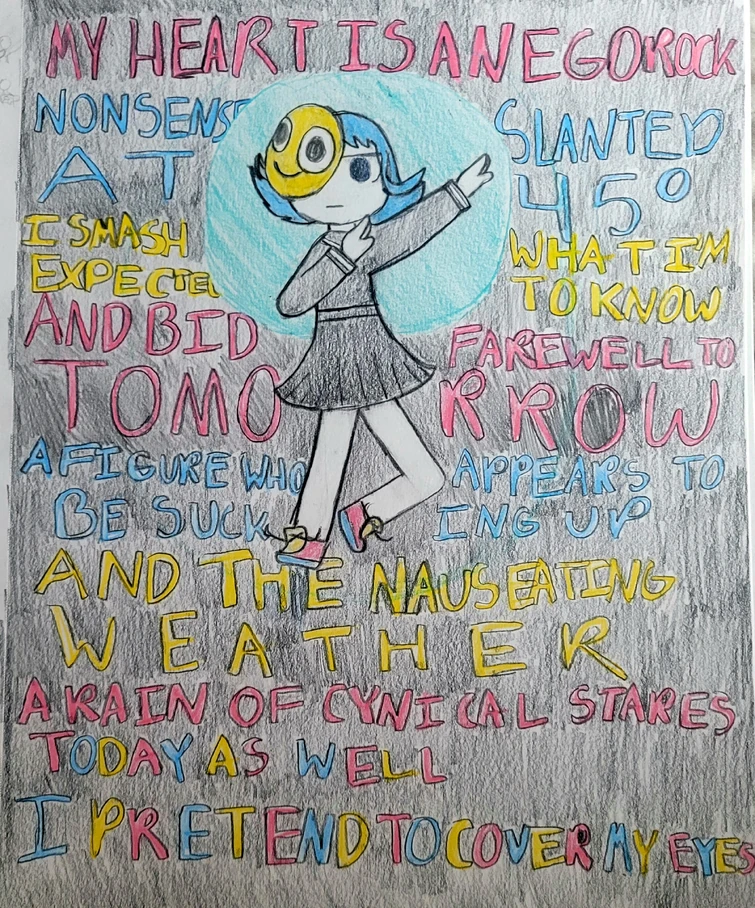 MY HEART IS AN EGOROCK
NONSENSE SLANTED
AT 45°
I SMASH WHAT IM
EXPECTED TO KNOW
AND BID FAREWELL TO
TOMORROW
A FIGURE WHO APPEARS TO
BE SUCKING UP
AND THE NAUSEATING
WEATHER
A RAIN OF CYNICAL STARES
TODAY AS WELL
I PRETEND TO COVER MY EYES